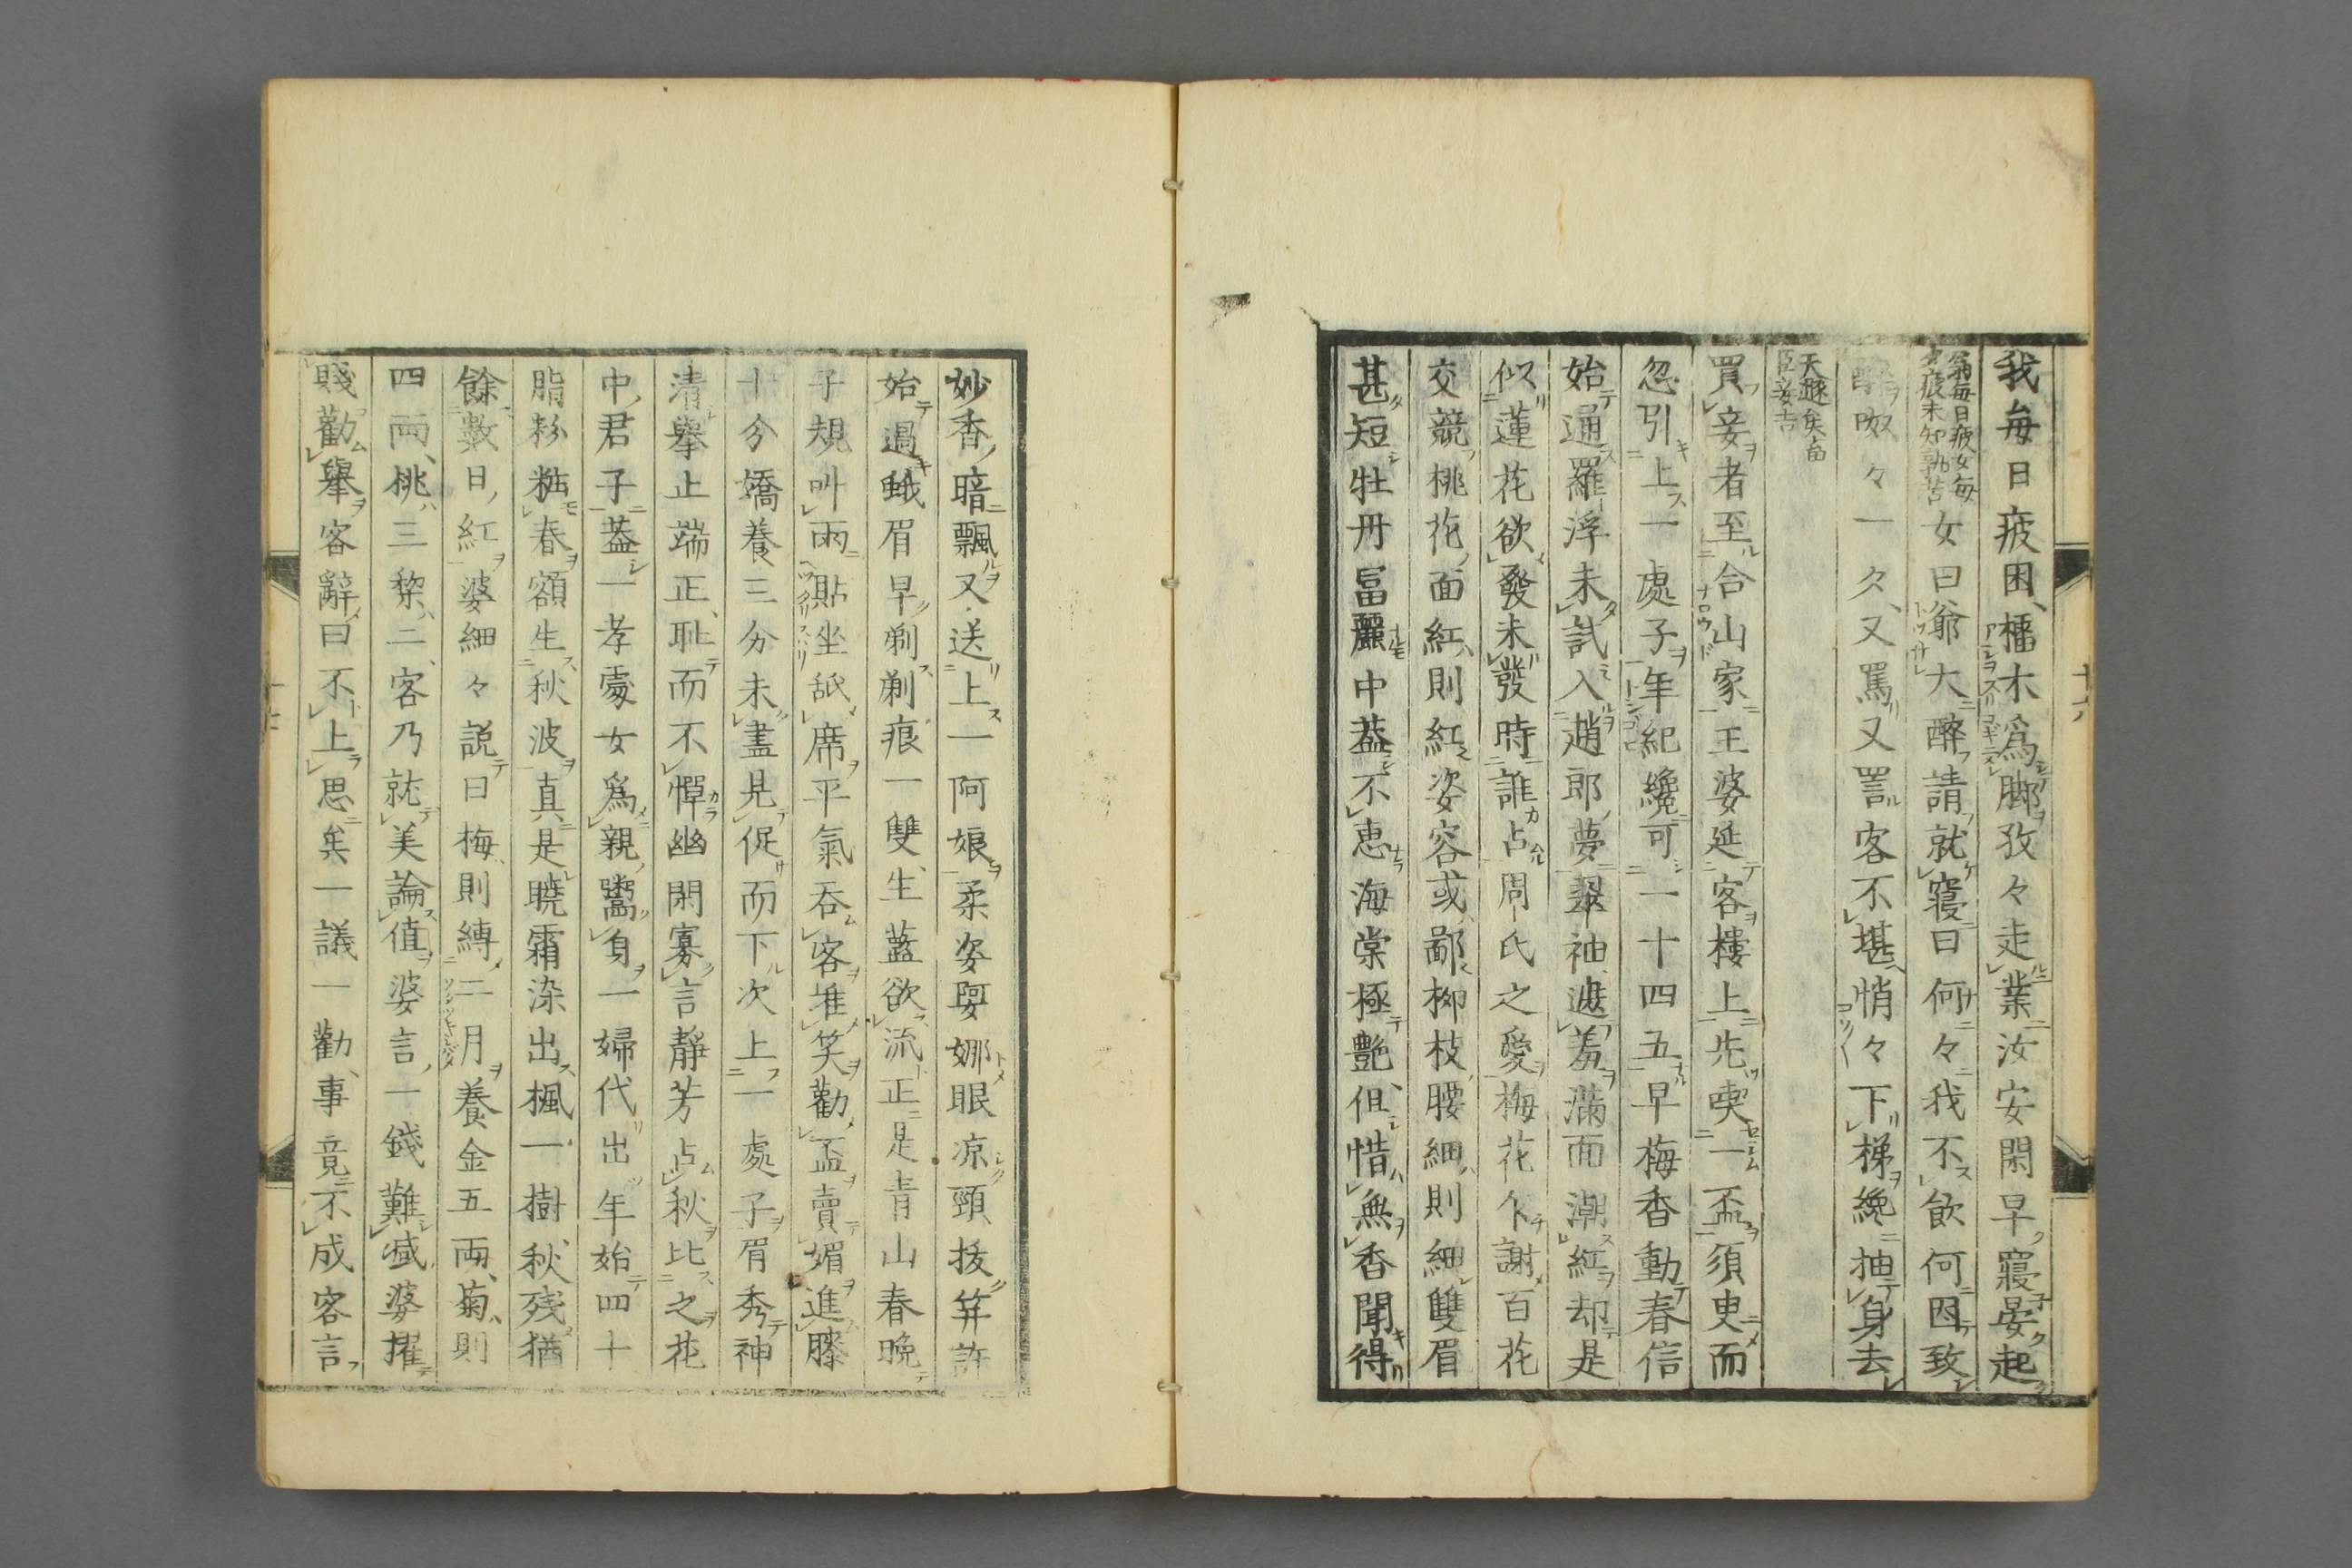 我毎日疲困、檑木為脚孜々走業汝安閑早寢晏起
翁毎日疲女毎
夕疲未知孰苦
女曰爺大醉請就寢曰何々我不飲何因致
醉呶々一夕、又罵又詈客不堪悄々下梯纔抽身去
天趣矣
臣妾吉
買妾者至合山家王婆延客樓上先喫一盃須臾而
忽引上一處子年紀纔可一十四五早梅香動春信
始通羅浮未試入趙郎夢翠袖遮羞滿面潮紅却是
似蓮花欲發未發時誰占周氏之愛梅花乍謝百花
交競桃花面紅則紅姿容或鄙柳枝腰細則細雙眉
甚短牡丹富麗中葢不恵海棠極艶但惜無香聞得
妙香暗飄又送上一阿娘柔姿婀娜眼凉頸拔笄許
始過蛾眉早剃剃痕一雙生藍欲流正是青山春晩
子規叫雨貼坐舐席平氣呑客堆笑勸盃賣媚進膝
十分嬌養三分未盡見促而下次上一處子眉秀神
清擧止端正耻而不憚幽閑寡言靜芳占秋比之花
中君子葢一孝處女為親鬻身一婦代出年始四十
脂粉粧春額生秋波真是曉霜染出楓一樹秋殘猶
餘數日紅婆細々説曰梅則縛二月養金五兩菊則
四兩桃三棃二客乃就美論值婆言一錢難減婆擢
賤勸擧客辭曰不上思矣一議一勸事竟不成客言